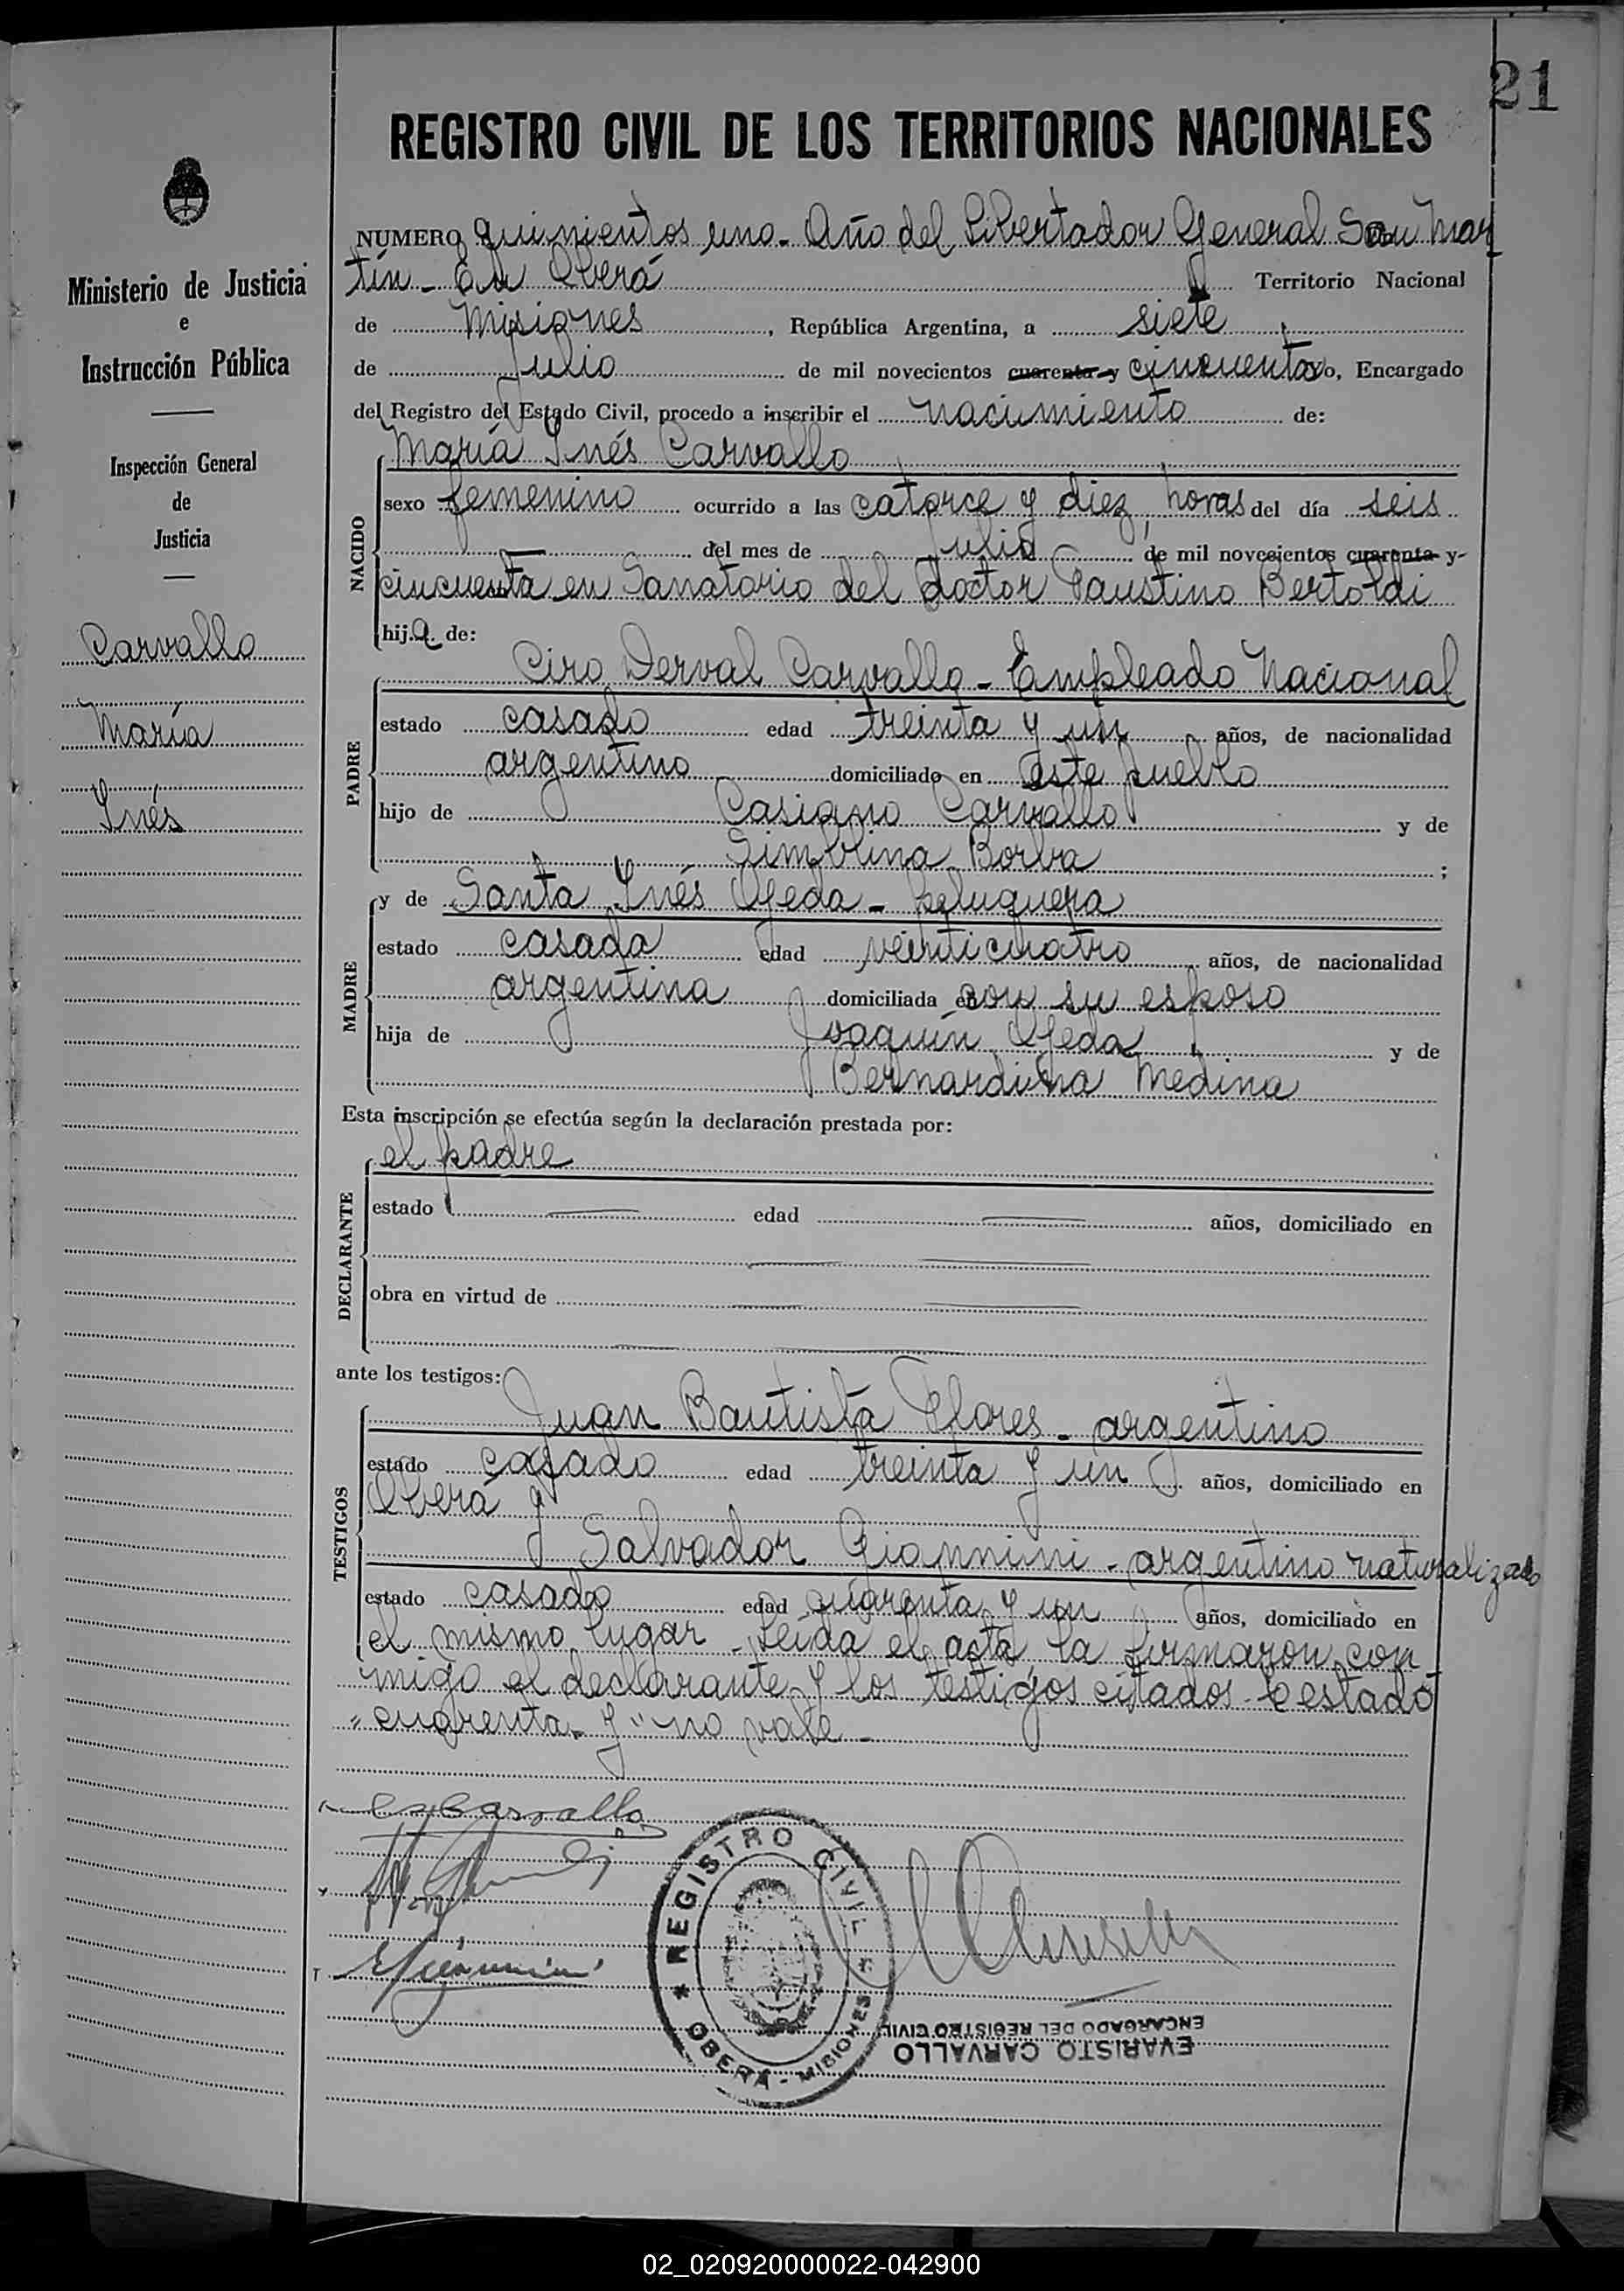 21
REGISTRO CIVIL DE LOS TERRITORIOS NACIONALES
Ministerio de Justicia
e
Instrucción Pública
Inspección General
de
Justicia
Carvallo
María
Inés
NUMERO quinientos uno - Año del Libertador General San Mar
tín - En Oberá Territorio Nacional
de Misiones, República Argentina, a siete
de Julio de mil novecientos cuarenta y cincuenta yo, Encargado
del Registro del Estado Civil, procedo a inscribir el nacimiento de:
NACIDO
María Inés Carvallo
sexo femenino ocurrido a las catorce y diez horas del día seis
del mes de Julio de mil novecientos cuarenta y-
cincuenta en Sanatorio del Doctor Faustino Bertoldi
hija de:
PADRE
Ciro Derval Carvallo - Empleado Nacional
estado casado edad treinta y un años, de nacionalidad
argentino domiciliado en este pueblo
hijo de Casiano Carvallo y de
Simblina Borba ;
MADRE
y de Santa Inés Ojeda - peluquera
estado casada edad veinticuatro años, de nacionalidad
argentina domiciliada en con su esposo
hija de Joaquín Ojeda y de
Bernardina Medina
Esta inscripción se efectúa según la declaración prestada por:
DECLARANTE
el padre
estado edad años, domiciliado en
obra en virtud de
ante los testigos:
TESTIGOS
Juan Bautista Flores - argentino
estado casado edad treinta y un años, domiciliado en
Oberá y
Salvador Giannini - argentino naturalizado
estado casado edad cuarenta y un años, domiciliado en
el mismo lugar - Leída el acta, la firmaron con
migo el declarante y los testigos citados - Testado
"cuarenta - y" no vale -
Carvallo
Giannini
* REGISTRO CIVIL *
OBERÁ - MISIONES
EVARISTO CARVALLO
ENCARGADO DEL REGISTRO CIVIL
02_020920000022-042900